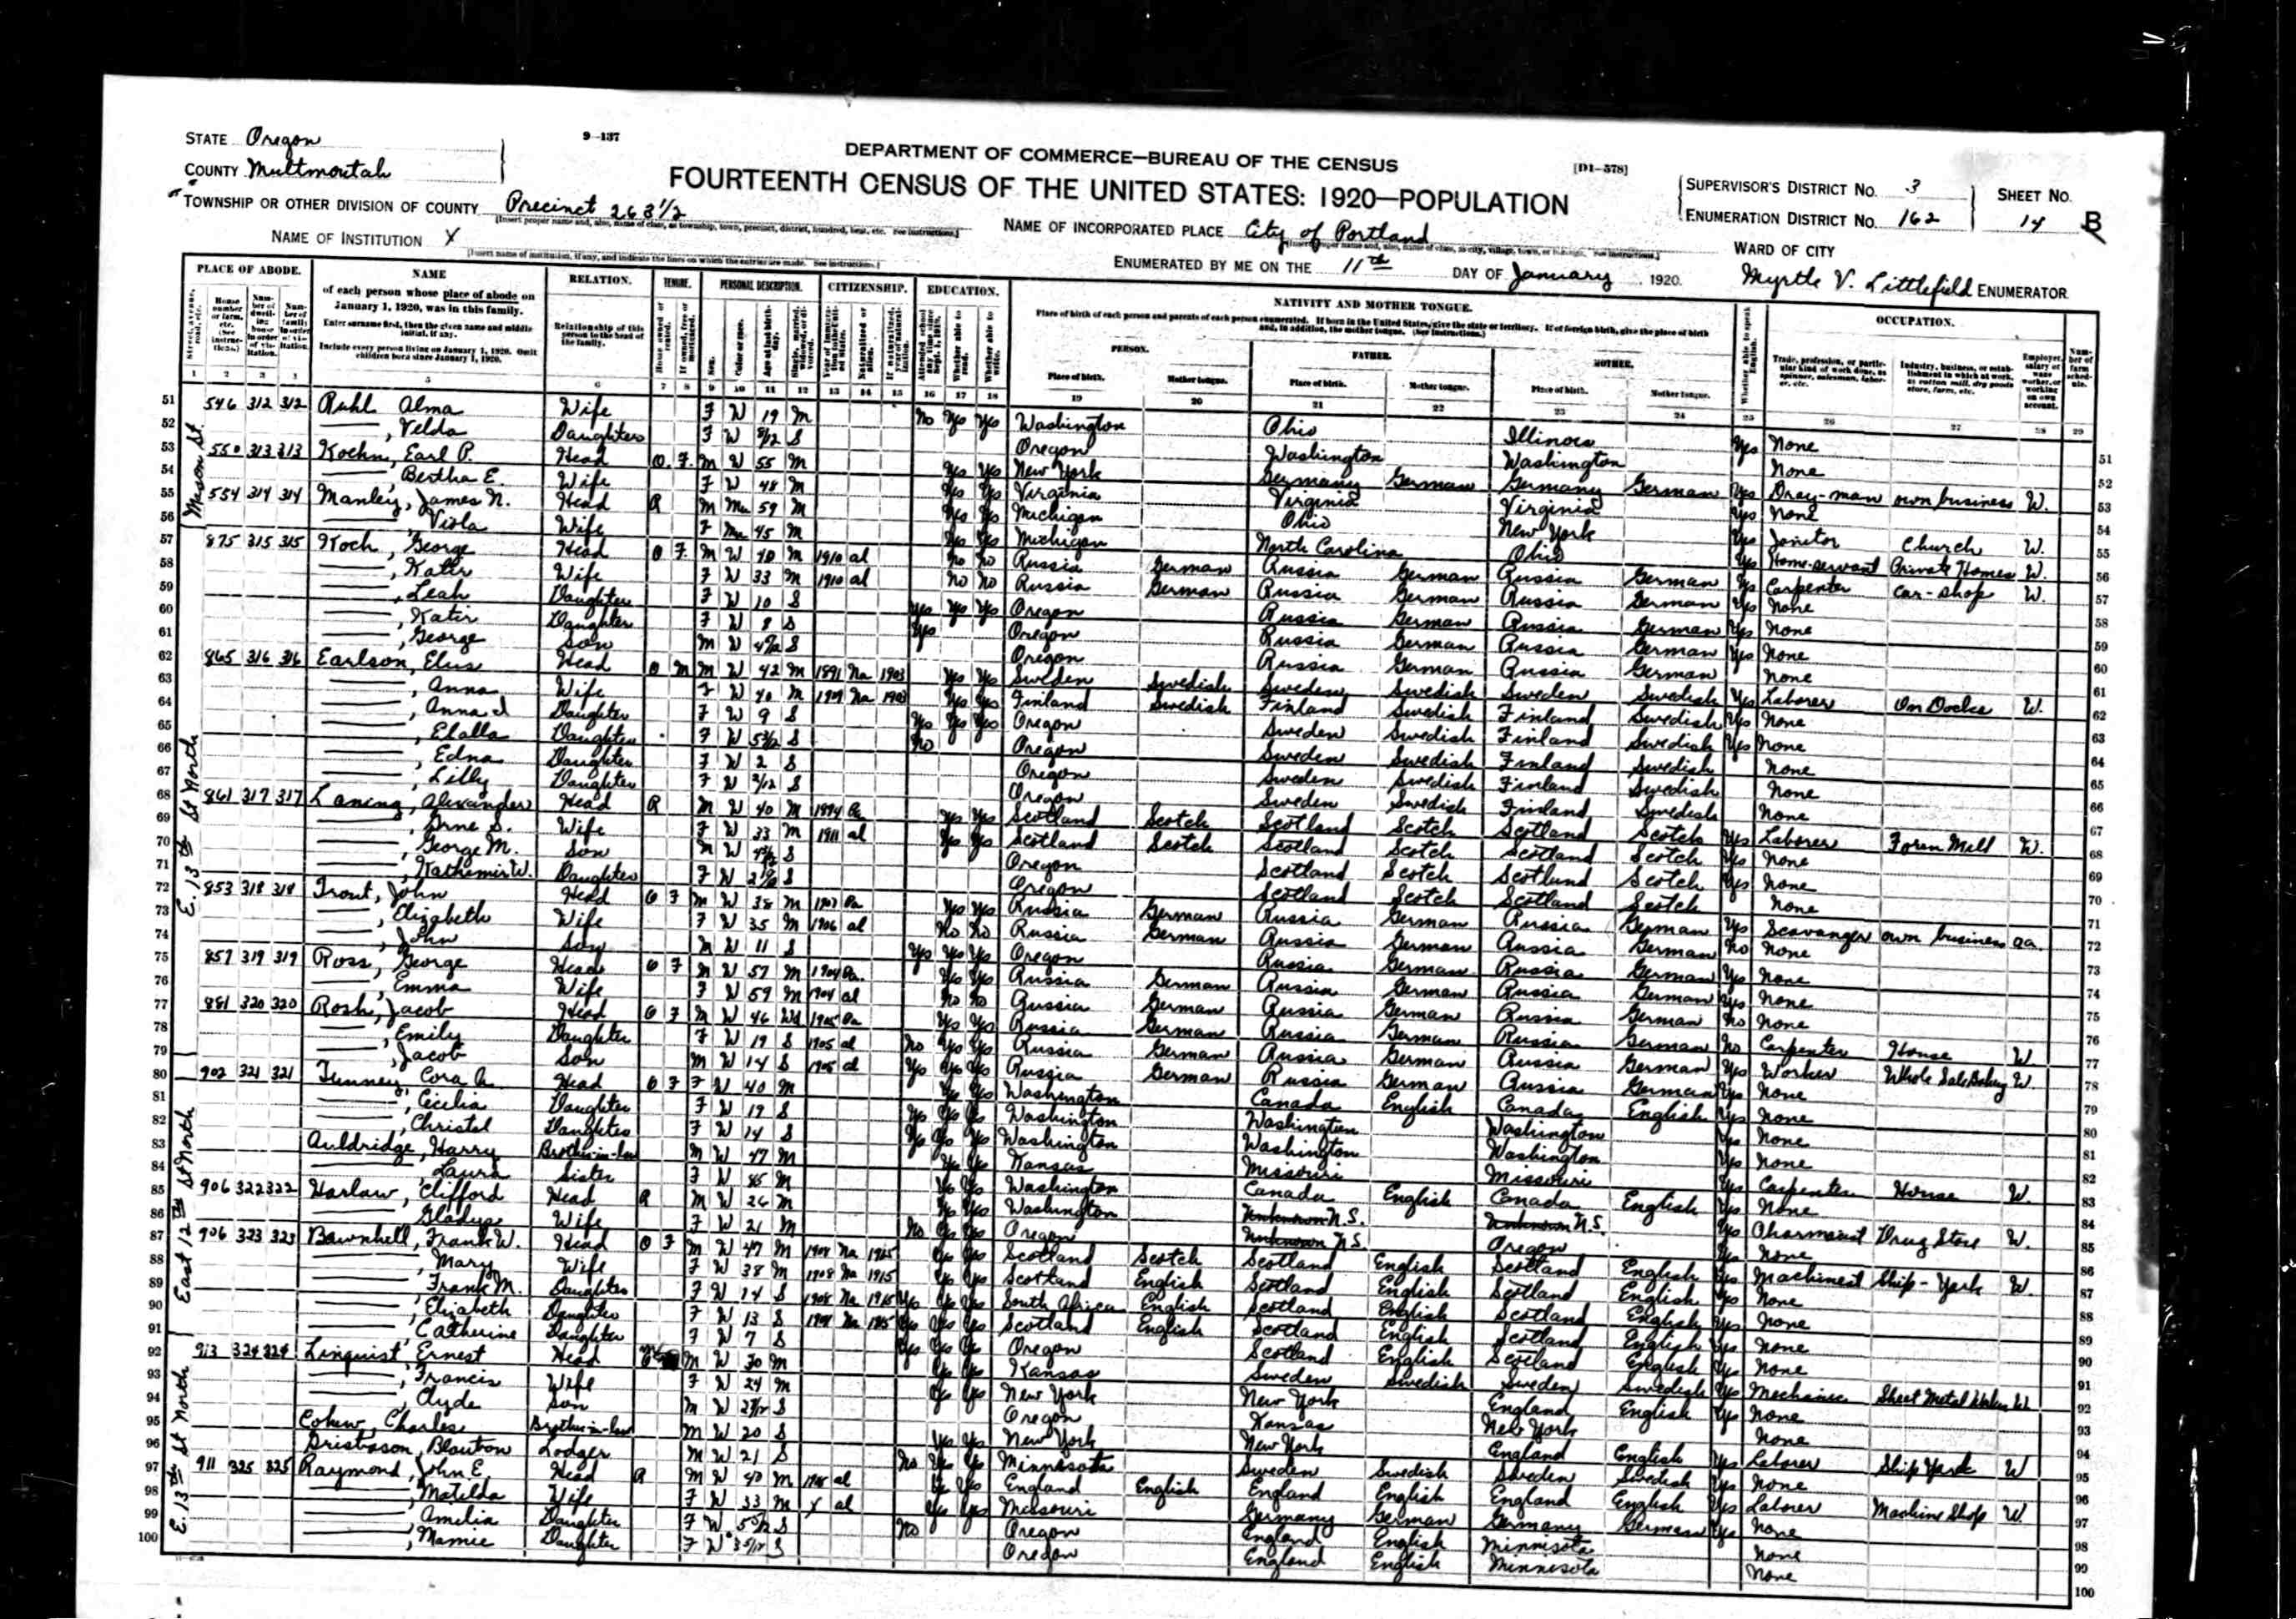 STATE Oregon
9-137
COUNTY Multmoutah
DEPARTMENT OF COMMERCE—BUREAU OF THE CENSUS
[D1-578]
FOURTEENTH CENSUS OF THE UNITED STATES: 1920—POPULATION
SUPERVISOR'S DISTRICT No. 3
SHEET No.
ENUMERATION DISTRICT No. 162
14 B
TOWNSHIP OR OTHER DIVISION OF COUNTY Precinct 263 1/2
NAME OF INSTITUTION X
NAME OF INCORPORATED PLACE City of Portland
WARD OF CITY
ENUMERATED BY ME ON THE 11th DAY OF January, 1920. Myrtle V. Littlefield ENUMERATOR
PLACE OF ABODE. NAME RELATION. TENURE. PERSONAL DESCRIPTION. CITIZENSHIP. EDUCATION. NATIVITY AND MOTHER TONGUE. OCCUPATION.
of each person whose place of abode on January 1, 1920, was in this family.
Enter surname first, then the given name and middle initial, if any.
Include every person living on January 1, 1920. Omit children born since January 1, 1920.
Relationship of this person to the head of the family.
PERSON. FATHER. MOTHER.
Place of birth. Mother tongue. Place of birth. Mother tongue. Place of birth. Mother tongue.
1 2 3 4 5 6 7 8 9 10 11 12 13 14 15 16 17 18 19 20 21 22 23 24 25 26 27 28 29
Mason St
51 546 312 312 Ruhl Alma Wife F W 19 M No Yes Yes Washington Ohio Illinois Yes None 51
52 ——, Velda Daughter F W 8/12 S Oregon Washington Washington None 52
53 550 313 313 Koehn, Earl P. Head O. F. M W 55 M Yes Yes New York Germany German Germany German Yes Dray-man own business W. 53
54 —— Bertha E. Wife F W 48 M Yes Yes Virginia Virginia Virginia Yes None 54
55 554 314 314 Manley, James N. Head R M Mu 59 M Yes Yes Michigan Ohio New York Yes Janitor Church W. 55
56 ——, Viola Wife F Mu 45 M Yes Yes Michigan North Carolina Ohio Yes Home-servant Private Homes W. 56
57 875 315 315 Koch, George Head O F. M W 40 M 1910 al No No Russia German Russia German Russia German Yes Carpenter car-shop W. 57
58 ——, Katie Wife F W 33 M 1910 al No No Russia German Russia German Russia German Yes None 58
59 ——, Leah Daughter F W 10 S Yes Yes Yes Oregon Russia German Russia German Yes None 59
60 ——, Katie Daughter F W 8 S Yes Oregon Russia German Russia German Yes None 60
61 ——, George Son M W S Oregon Russia German Russia German None 61
E. 13th St North
62 865 316 316 Earlson, Elus Head O M M W 42 M 1891 Na 1903 Yes Yes Sweden Swedish Sweden Swedish Sweden Swedish Yes Laborer On Docks W. 62
63 ——, Anna Wife F W 40 M 1909 Na 1903 Yes Yes Finland Swedish Finland Swedish Finland Swedish Yes None 63
64 ——, Anna I Daughter F W 9 S Yes Yes Yes Oregon Sweden Swedish Finland Swedish Yes None 64
65 ——, Elalla Daughter F W S No Oregon Sweden Swedish Finland Swedish None 65
66 ——, Edna Daughter F W 2 S Oregon Sweden Swedish Finland Swedish None 66
67 ——, Lilly Daughter F W S Oregon Sweden Swedish Finland Swedish None 67
68 861 317 317 Laning, Alexander Head R M W 40 M 1894 Pa Yes Yes Scotland Scotch Scotland Scotch Scotland Scotch Yes Laborer W. 68
69 ——, S. Wife F W 33 M 1911 al Yes Yes Scotland Scotch Scotland Scotch Scotland Scotch Yes None 69
70 ——, George M. Son M W S Oregon Scotland Scotch Scotland Scotch Yes None 70
71 ——, W. Daughter F W S Oregon Scotland Scotch Scotland Scotch None 71
72 853 318 318 Trout, John Head O F M W 38 M 1907 Pa Yes Yes Russia German Russia German Russia German Yes Scavanger own business oa. 72
73 ——, Elizabeth Wife F W 35 M 1906 al No No Russia German Russia German Russia German No None 73
74 ——, John Son M W 11 S Yes Yes Yes Oregon Russia German Russia German Yes None 74
75 857 319 319 Ross, George Head O F M W 57 M 1904 Pa. Yes Yes Russia German Russia German Russia German Yes None 75
76 ——, Emma Wife F W 59 M 1904 al No No Russia German Russia German Russia German No None 76
77 881 320 320 Rosh, Jacob Head O F M W 46 Wd 1905 Pa Yes Yes Russia German Russia German Russia German No Carpenter House W 77
78 ——, Emily Daughter F W 19 S 1905 al No Yes Yes Russia German Russia German Russia German Yes Worker Whole Sale Bakery W. 78
79 ——, Jacob Son M W 14 S 1905 al Yes Yes Yes Russia German Russia German Russia German Yes None 79
East 12th St North
80 902 321 321 Tunney, Cora A. Head O F F W 40 M Yes Yes Washington Canada English Canada English Yes None 80
81 ——, Cecilia Daughter F W 19 S Yes Yes Yes Washington Washington Washington Yes None 81
82 ——, Christal Daughter F W 14 S Yes Yes Yes Washington Washington Washington Yes None 82
83 Auldridge, Harry Brother-in-law M W 47 M Yes Yes Kansas Missouri Missouri Yes Carpenter House W. 83
84 ——, Laura Sister F W 45 M Yes Yes Washington Canada English Canada English Yes None 84
85 906 322 322 Harlaw, Clifford Head R M W 26 M Yes Yes Washington Unknown U.S. Unknown U.S. Yes Pharmacist Drug Store W. 85
86 ——, Gladys Wife F W 21 M No Yes Yes Oregon Unknown U.S. Oregon Yes None 86
87 906 323 323 Bawnhell, Frank W. Head O F M W 47 M 1908 Na 1915 Yes Yes Scotland Scotch Scotland English Scotland English Yes Machinest Ship-York W. 87
88 ——, Mary Wife F W 38 M 1908 Na 1915 Yes Yes Scotland English Scotland English Scotland English Yes None 88
89 ——, Frank M. Daughter F W 14 S 1908 Na 1915 Yes Yes Yes South Africa English Scotland English Scotland English Yes None 89
90 ——, Elizabeth Daughter F W 13 S 1908 Na 1915 Yes Yes Yes Scotland English Scotland English Scotland English Yes None 90
91 ——, Catherine Daughter F W 7 S Yes Yes Yes Oregon Scotland English Scotland English Yes None 91
E. 13th St North
92 913 324 324 Linquist, Ernest Head M W 30 M Yes Yes Kansas Sweden Swedish Sweden Swedish Yes Mechanic Sheet Metal Works W 92
93 ——, Francis Wife F W 24 M Yes Yes New York New York England English Yes None 93
94 ——, Clyde Son M W S Oregon Kansas New York None 94
95 Cohew, Charles Brother-in-law M W 20 S Yes Yes New York New York England English Yes Laborer Ship York W 95
96 Lodger M W 21 S No Yes Yes Minnesota Sweden Swedish Sweden Swedish Yes None 96
97 911 325 325 Raymond, John E. Head R M W 40 M al Yes Yes England English England English England English Yes Laborer Machine Shop W. 97
98 ——, Matilda Wife F W 33 M X al Yes Yes Missouri Germany German Germany German Yes None 98
99 ——, Amelia Daughter F W 5 S No Oregon England English Minnesota None 99
100 ——, Mamie Daughter F W 3 S Oregon England English Minnesota None 100